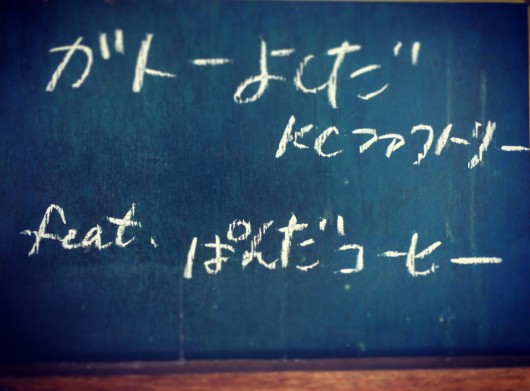 ガトーよしだ
KCファクトリー
feat. ぱんだコーヒー